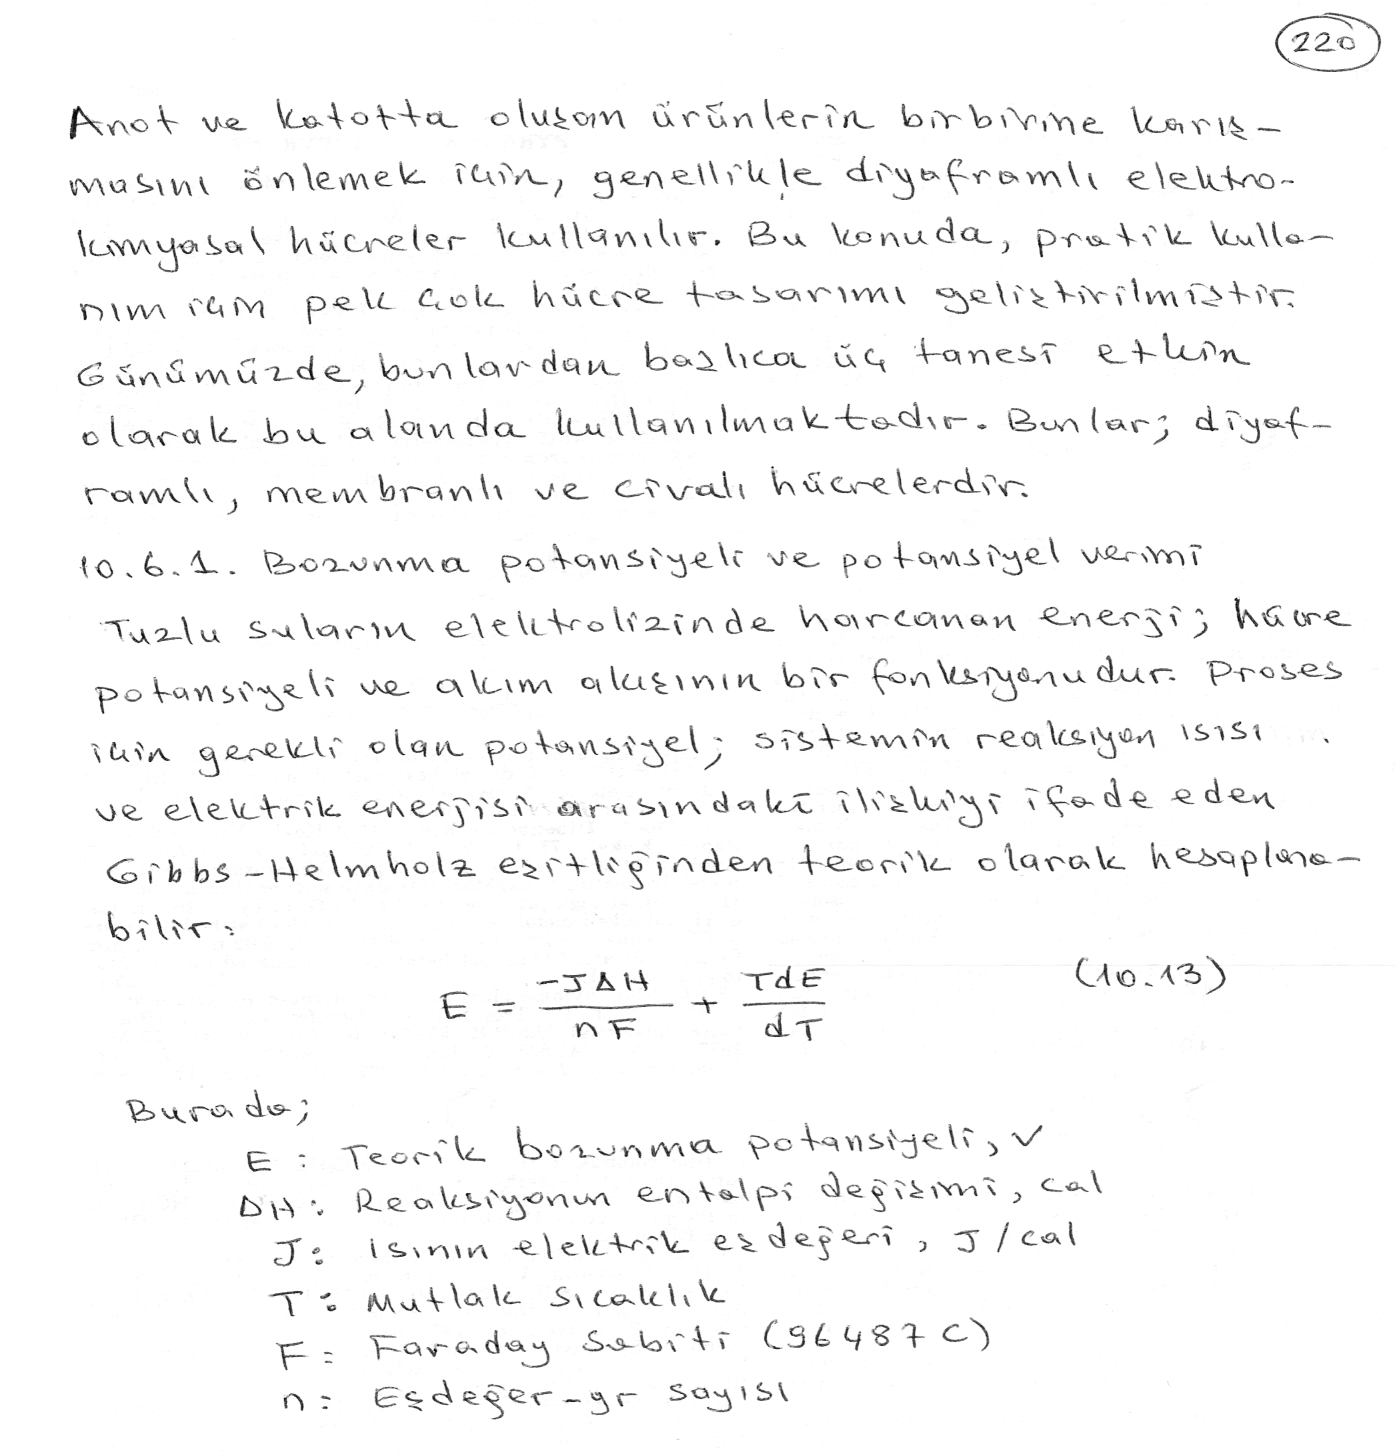 220
Anot ve katotta oluşan ürünlerin birbirine karış-
masını önlemek için, genellikle diyaframlı elektro-
kimyasal hücreler kullanılır. Bu konuda, pratik kulla-
nım için pek çok hücre tasarımı geliştirilmiştir.
Günümüzde, bunlardan başlıca üç tanesi etkin
olarak bu alanda kullanılmaktadır. Bunlar; diyaf-
ramlı, membranlı ve civalı hücrelerdir.
10.6.1. Bozunma potansiyeli ve potansiyel verimi
Tuzlu suların elektrolizinde harcanan enerji; hücre
potansiyeli ve akım akışının bir fonksiyonudur. Proses
için gerekli olan potansiyel; sistemin reaksiyon ısısı
ve elektrik enerjisi arasındaki ilişkiyi ifade eden
Gibbs-Helmholz eşitliğinden teorik olarak hesaplana-
bilir:
E = -JΔH / nF + TdE / dT (10.13)
Burada;
E : Teorik bozunma potansiyeli, V
ΔH : Reaksiyonun entalpi değişimi, cal
J : Isının elektrik eşdeğeri, J/cal
T : Mutlak sıcaklık
F : Faraday Sabiti (96487 C)
n : Eşdeğer-gr sayısı